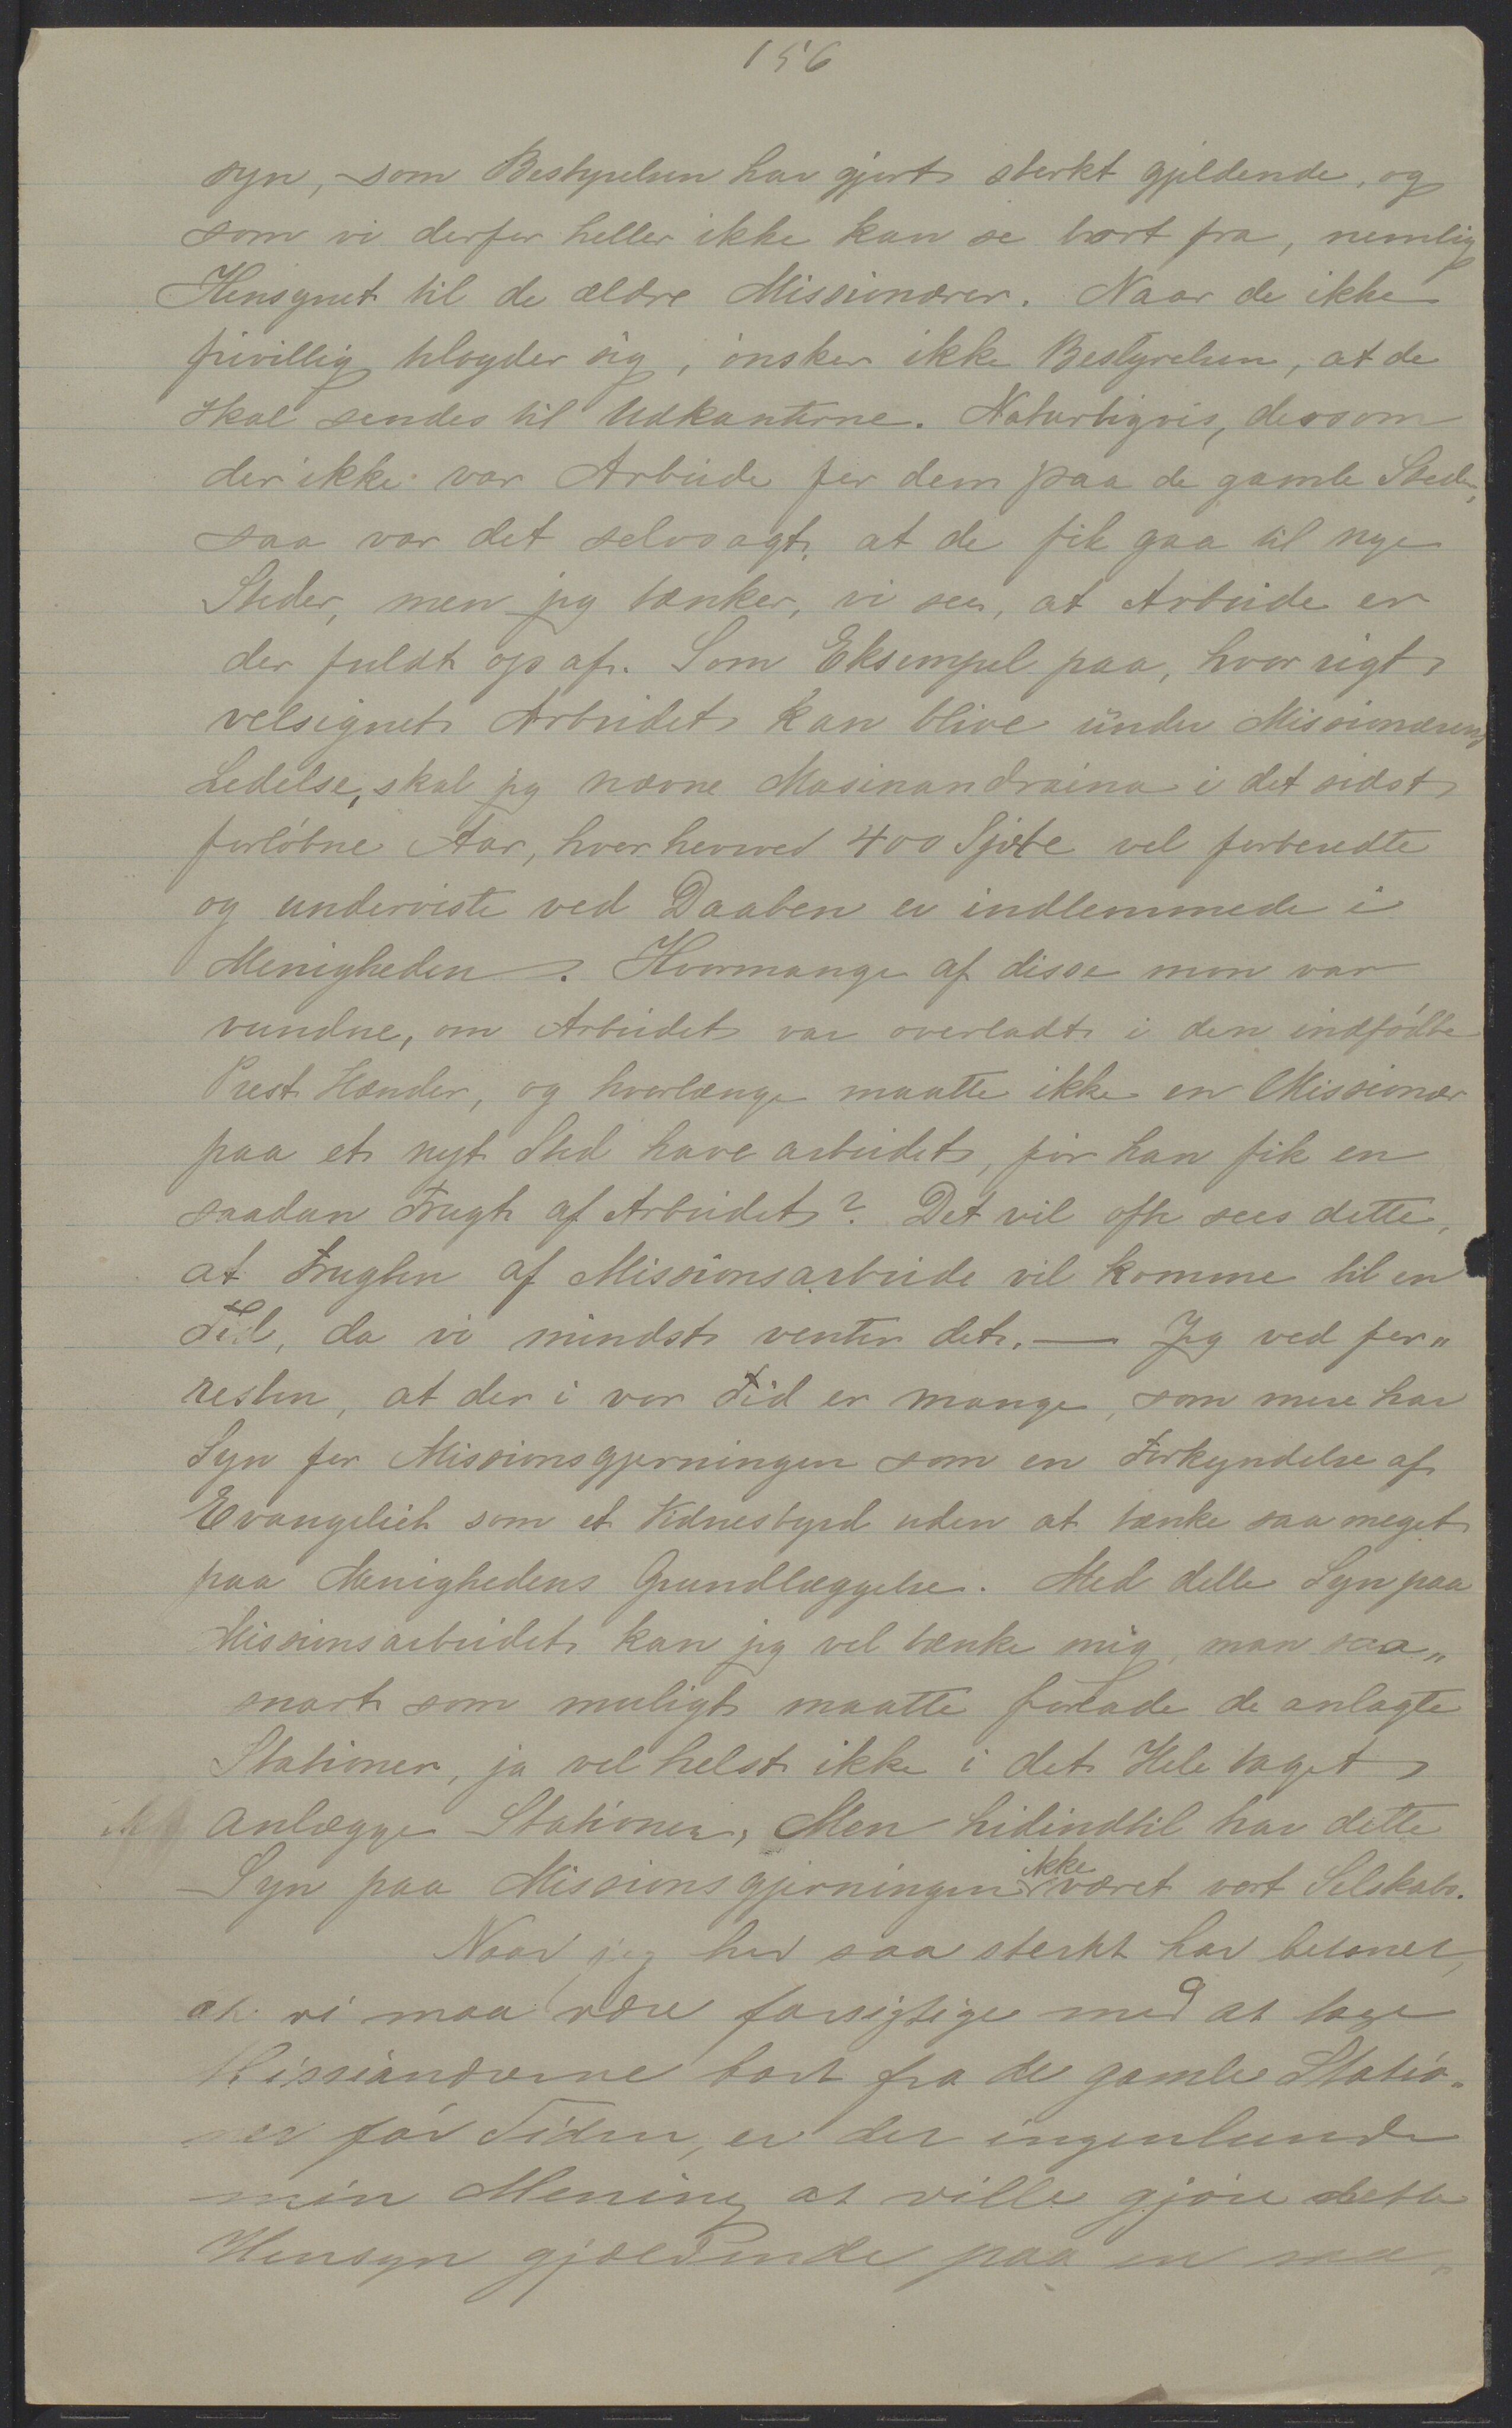 156
syn, som Bestyrelsen har gjort sterkt gjeldende, og
som vi derfor heller ikke kan se bort fra, nemlig
Hensynet til de ældre Missionærer. Naar de ikke
frivillig tilbyder sig, ønsker ikke Bestyrelsen, at de
skal sendes til Udkanterne. Naturligvis, dersom
der ikke var Arbeide for dem paa de gamle Steder,
saa var det selvsagt, at de fik gaa til nye
Steder, men jeg tænker, vi ser, at Arbeide er
der fuldt op af. Som Eksempel paa, hvor rigt
velsignet Arbeidet kan blive under Missionærens
Ledelse, skal jeg nævne Masinandraina i det sidst
forløbne Aar, hvor henved 400 Sjæle vel forberedte
og underviste ved Daaben er indlemmede i
Menigheden. Hvormange af disse mon var
vundne, om Arbeidet var overladt i den indfødte
Prest Hænder, og hvorlænge maatte ikke en Missionær
paa et nyt Sted have arbeidet, før han fik en
saadan Frugt af Arbeidet? Det vil ofte sees dette,
at Frugten af Missionsarbeide vil komme til en
Tid, da vi mindst venter det. — Jeg ved for„
resten, at der i vor Tid er mange, som mere har
Syn for Missionsgjerningen som en Forkyndelse af
Evangeliet som et Vidnesbyrd uden at tænke saa meget
paa Menighedens Grundlæggelse. Med dette Syn paa
Missionsarbeidet kan jeg vel tænke mig, man saa„
snart som muligt maatte forlade de anlagte
Stationer, ja vel helst ikke i det Hele taget
anlægge Stationer, Men hidindtil har dette
Syn paa Missionsgjerningen ikke været vort Selskabs.
Naar jeg her saa sterkt har betonet,
at vi maa være forsigtige med at tage
Missionærerne bort fra de gamle Statio„
ner før Tiden, er det ingenlunde
min Mening at ville gjøre dette
Hensyn gjældende paa en saa„